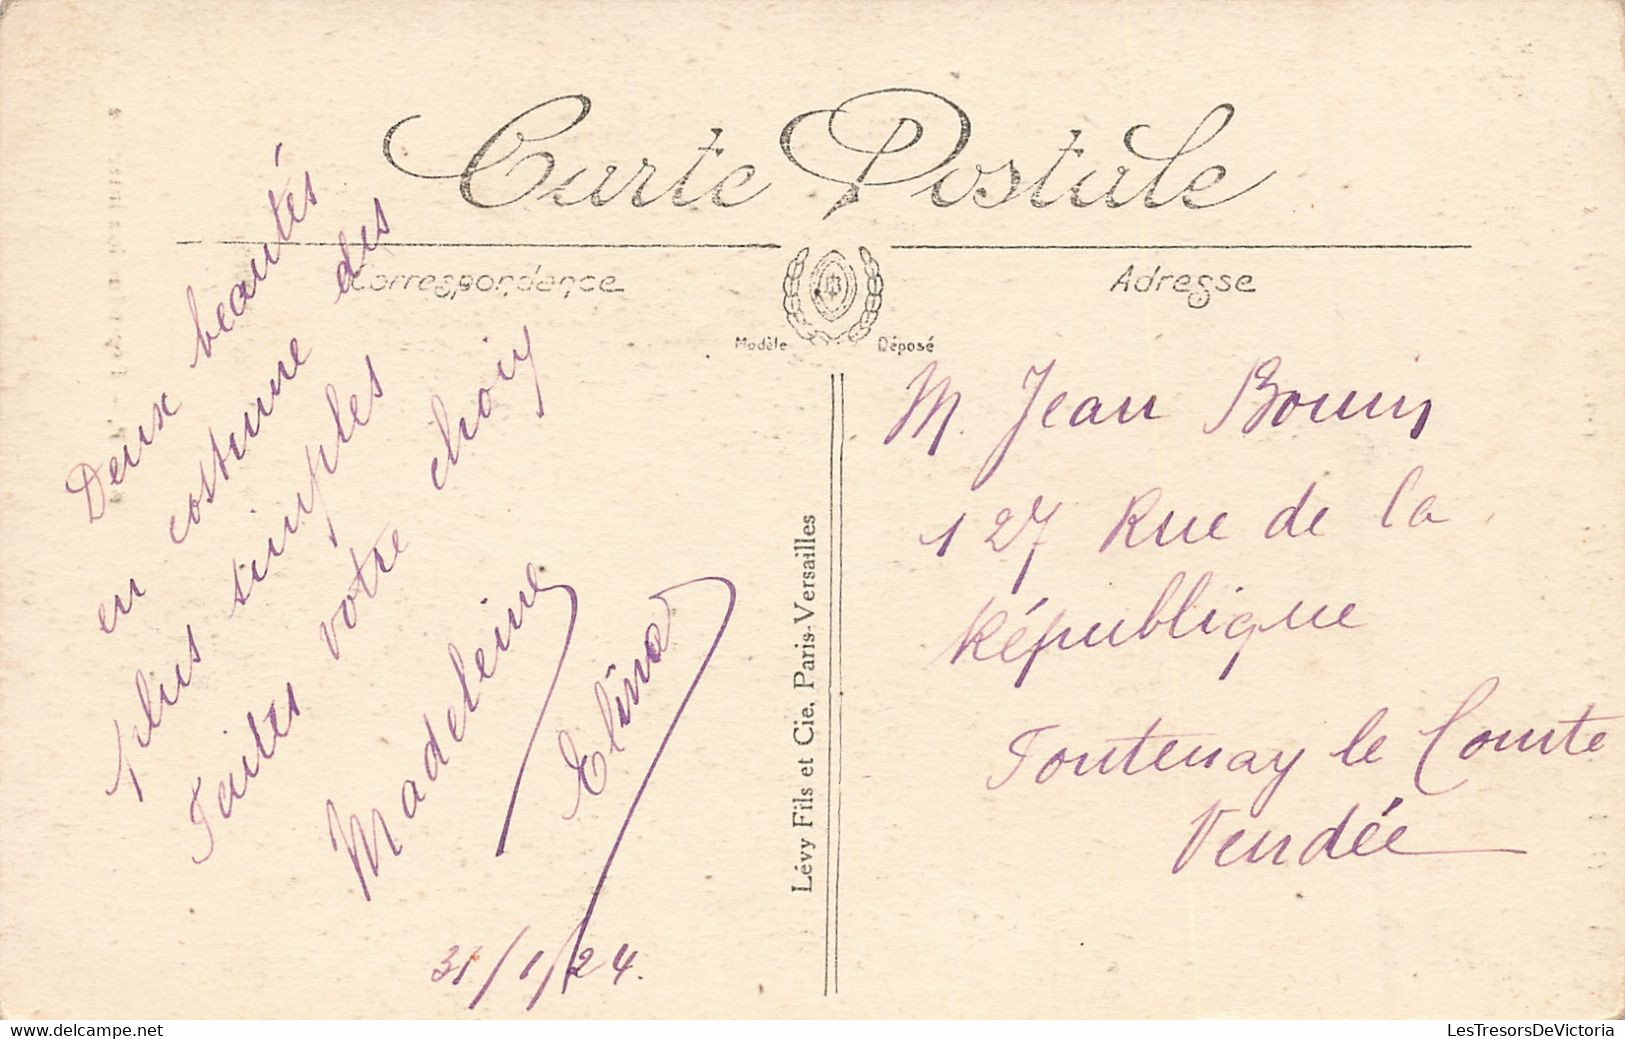 Carte Postale
Correspondance
Adresse
Modèle Déposé
Deux beautés
en costume des
plus simples
Faites votre choix
Madeleine
Elina
31/1/24.
Lévy Fils et Cie, Paris-Versailles
M. Jean Bouin
127 Rue de la
République
Fontenay le Comte
Vendée
delcampe.net
LesTresorsDeVictoria